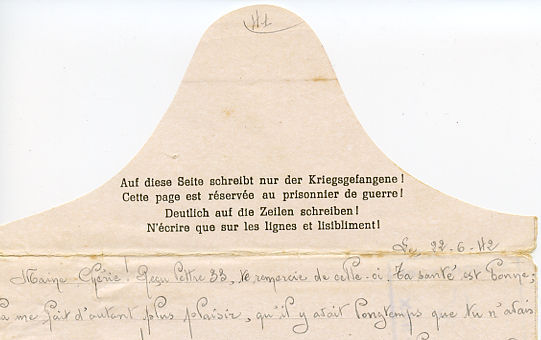 Auf diese Seite schreibt nur der Kriegsgefangene!
Cette page est réservée au prisonnier de guerre!
Deutlich auf die Zeilen schreiben!
N'écrire que sur les lignes et lisibliment!
Le 22-6-42
Reçu lettre 33, te remercie de celle-ci. Ta santé est bonne;
me fait d'autant plus plaisir, qu'il y avait longtemps que tu n'avais